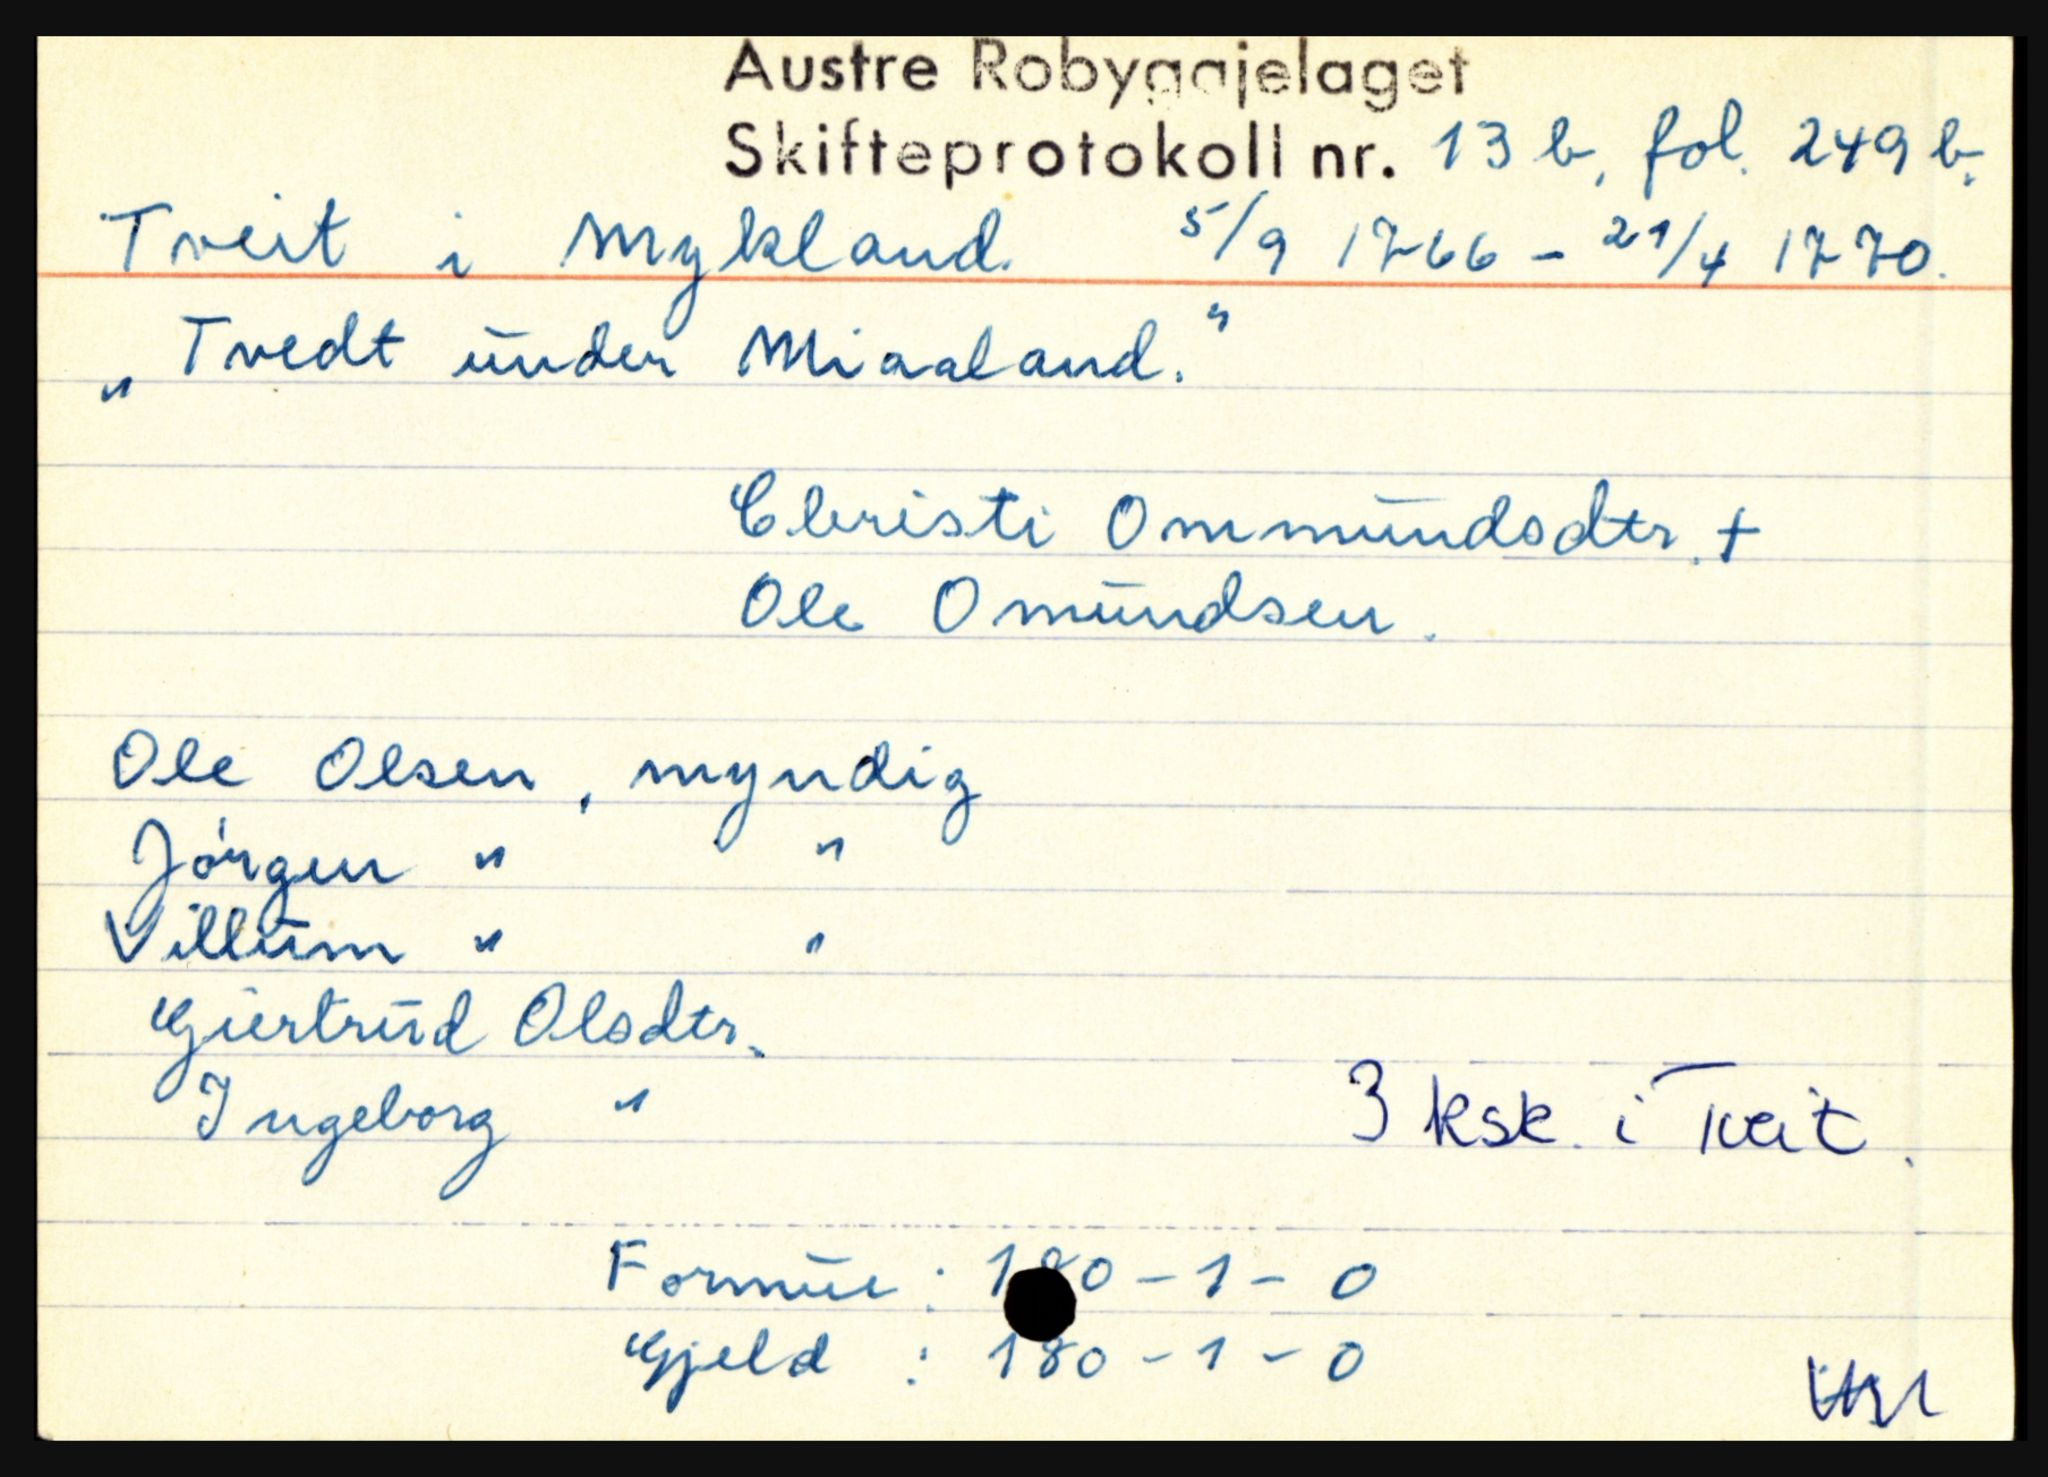 Austre Robyggjelaget
Skifteprotokoll nr. 13 b, fol. 249 b.
Tveit i Mykland. 5/9 1766 - 21/4 1770.
„Tvedt under Miaaland."
Christi Ommundsdtr. +
Ole Omundsen.
Ole Olsen, myndig
Jörgen " "
Villum " "
Giertrud Olsdtr.
Ingeborg "
3 ksk. i Tveit.
Formue : 180 - 1 - 0
Gjeld : 180 - 1 - 0